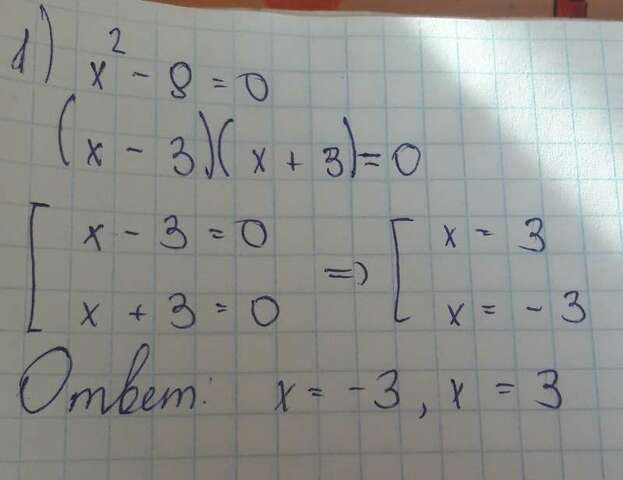 1) x² - 9 = 0
(x - 3)(x + 3) = 0
[ x - 3 = 0 => [ x = 3
x + 3 = 0 x = - 3
Ответ: x = -3, x = 3